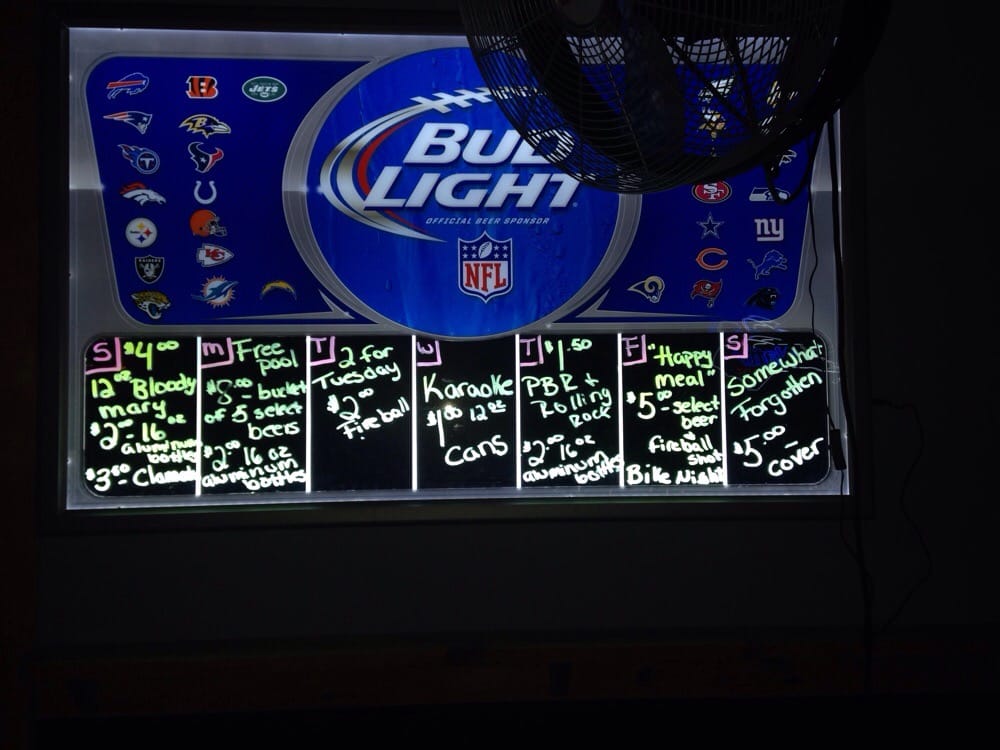 JETS
BUD
LIGHT
OFFICIAL BEER SPONSOR
NFL
SF
ny
S $4.00
12 oz Bloody
mary
$2.00-16 oz
aluminum
bottles
M Free
pool
$8.00 - bucket
of 5 select
beers
$2.00 16 oz
aluminum
bottles
T 2 for
Tuesday
$2.00
Fireball
W
Karaoke
$1.00 12 oz
cans
T $1.50
PBR +
Rolling
Rock
$2.00 16 oz
aluminum
bottles
F "Happy
meal"
$5.00-select
beer
+
fireball
shot
Bike Night
S
Somewhat
Forgotten
$5.00-
cover